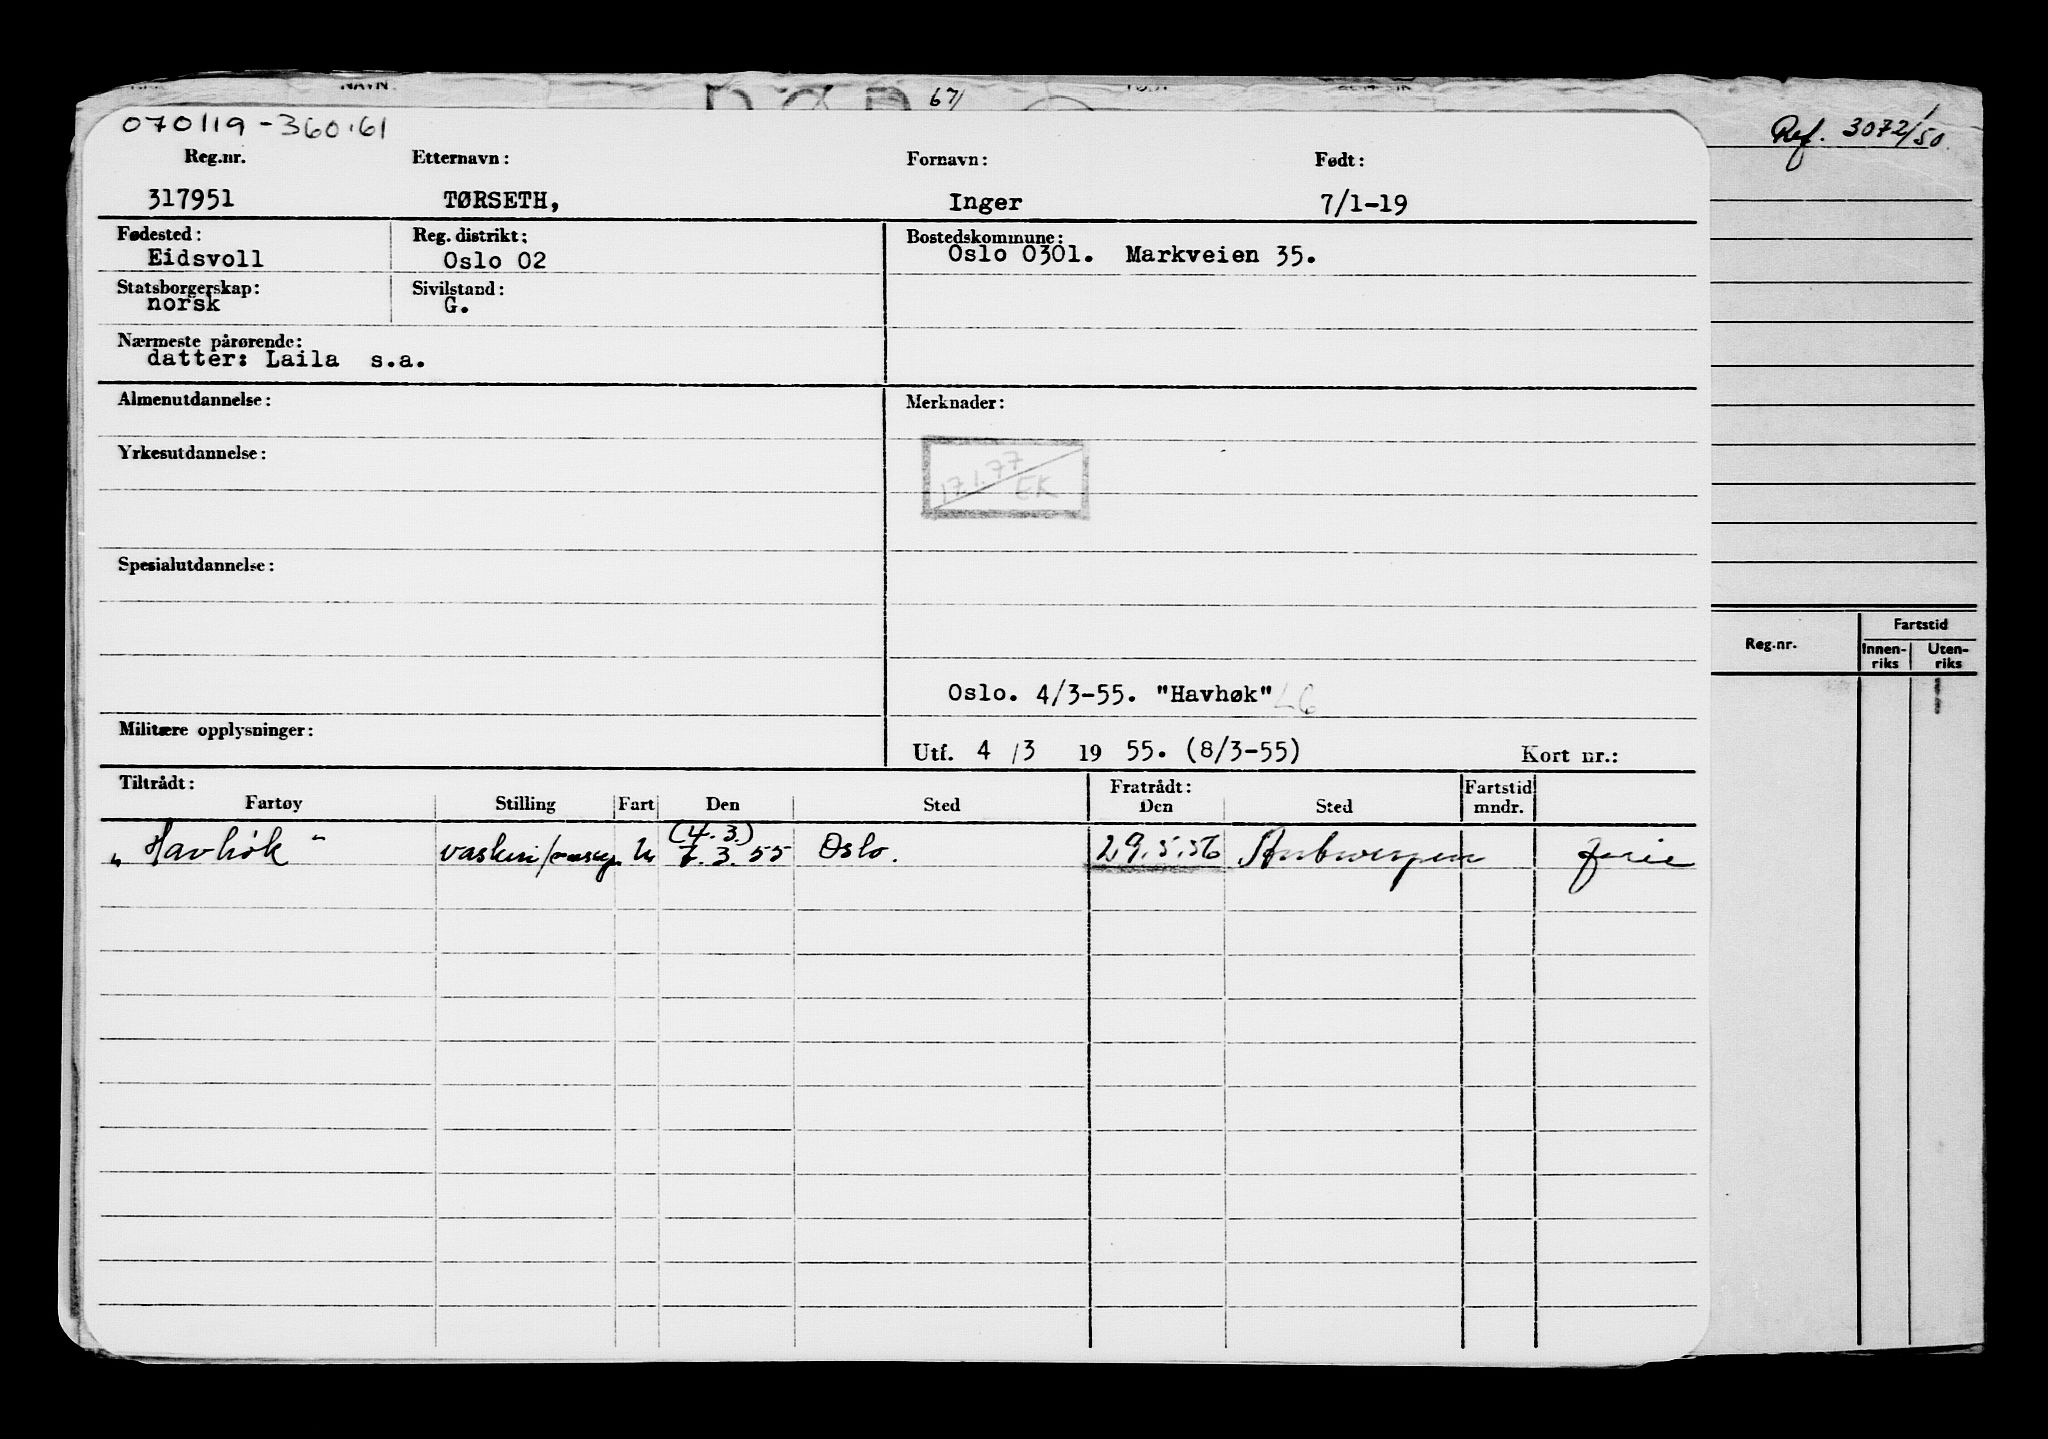 67/
Ref. 3072/50
070119-360.61
Reg.nr. Etternavn: Fornavn: Født:
317951 TØRSETH, Inger 7/1-19
Fødested: Reg. distrikt: Bostedskommune:
Eidsvoll Oslo 02 Oslo 0301. Markveien 35.
Statsborgerskap: Sivilstand:
norsk G.
Nærmeste pårørende:
datter: Laila s.a.
Almenutdannelse: Merknader:
Yrkesutdannelse:
17.1.77
EK
Spesialutdannelse:
Reg.nr. Fartstid
Innen-riks Uten-riks
Oslo. 4/3-55. "Havhøk"
Militære opplysninger:
Utf. 4 /3 19 55. (8/3-55) Kort nr.:
Tiltrådt: Fratrådt: Fartstid
Fartøy Stilling Fart Den Sted Den Sted mndr.
(4.3.)
"Havhøk" U 7.3.55 Oslo. 29.5.56 Antwerpen ferie